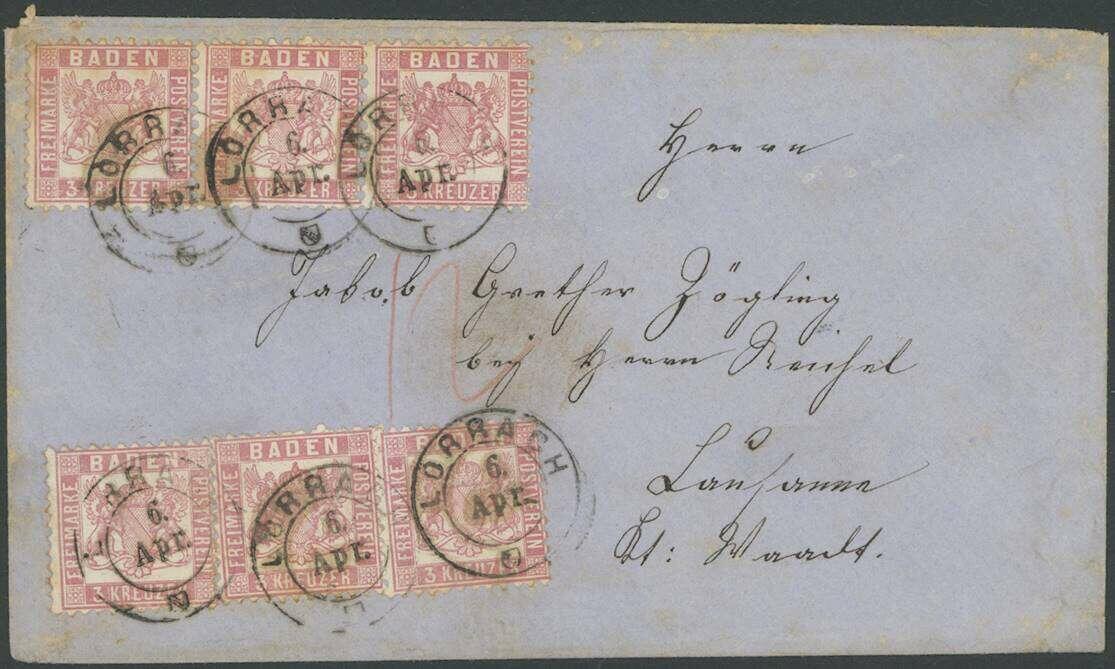 BADEN BADEN BADEN
FREIMARKE POSTVEREIN FREIMARKE POSTVEREIN FREIMARKE POSTVEREIN
3 KREUZER KREUZER 3 KREUZER
LÖRRA 6. Apr.
LÖRRA 6. Apr.
LÖR 6. Apr.
Herrn
Jakob Grether Zögling
bey Herrn Reichel
Lausanne
Kt: Waadt.
12
BADEN BADEN B
FREIMARKE POSTVEREIN FREIMARKE POSTVEREIN FREIMARKE POSTVEREIN
3 KREUZER 3 KREUZER 3 KREUZER
RRA 6. Apr.
LÖRRA 6. Apr.
LÖRRACH 6. Apr.